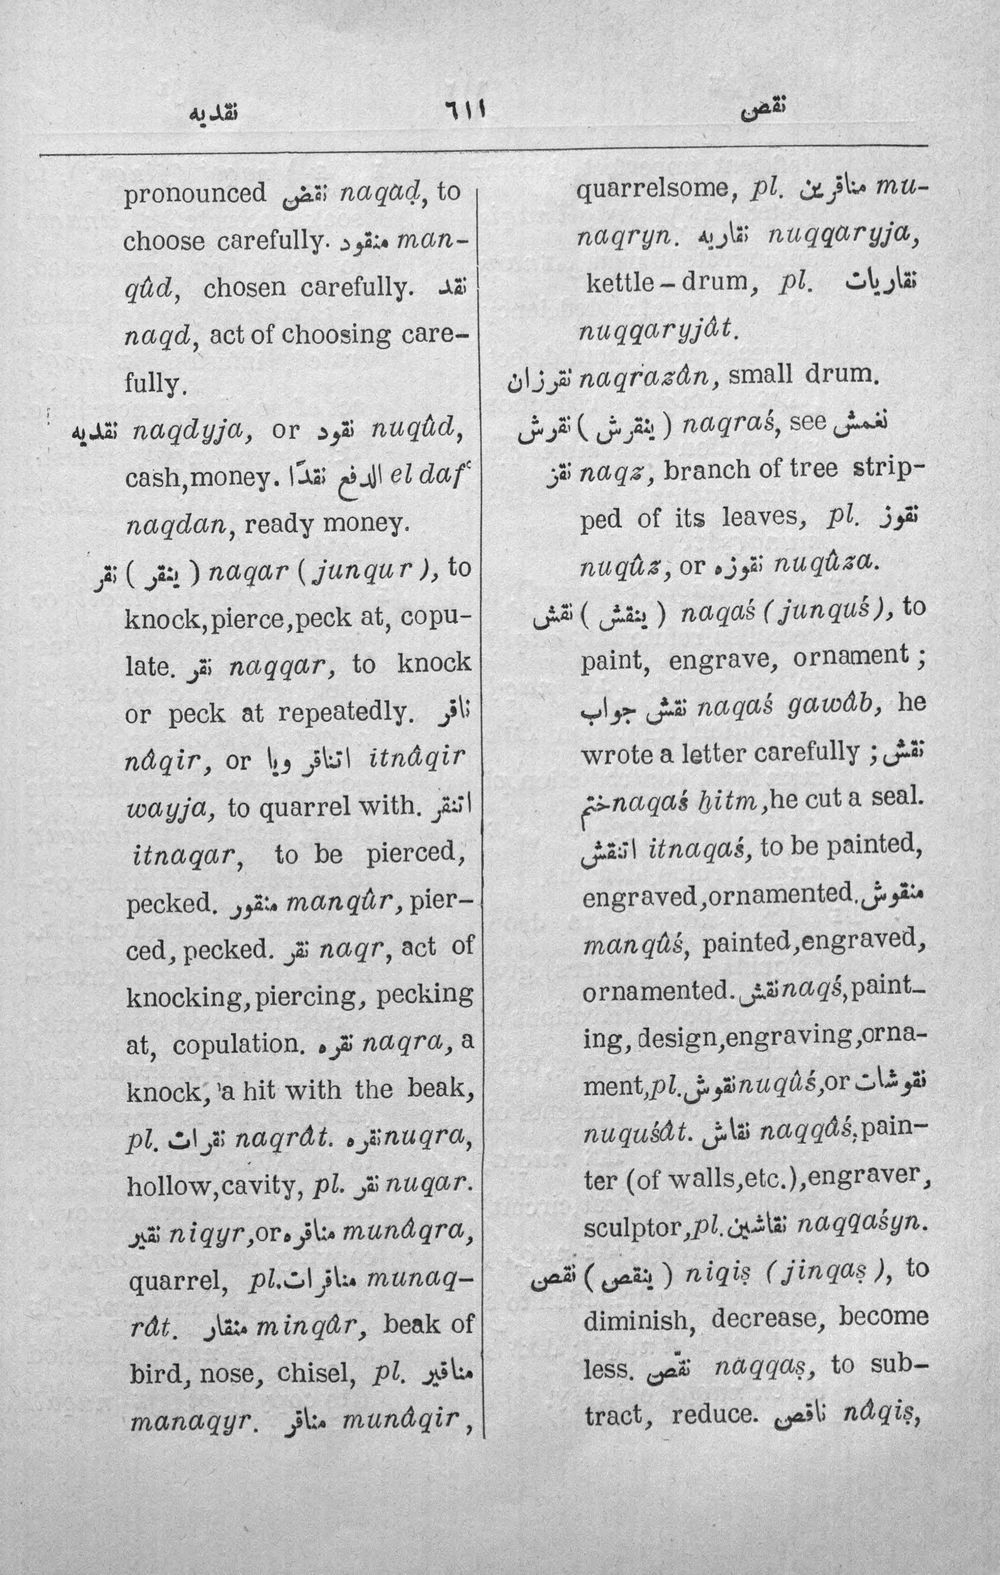 نقديه ٦١١ نقص
pronounced نقض naqaḍ, to
choose carefully. منقود man-
qûd, chosen carefully. نقد
naqd, act of choosing care-
fully.
نقديه naqdyja, or نقود nuqûd,
cash,money. الدفع نقدًا el dafʿ
naqdan, ready money.
نقر ( ينقر ) naqar (junqur), to
knock,pierce,peck at, copu-
late. نقر naqqar, to knock
or peck at repeatedly. ناقر
nâqir, or اتناقر ويا itnâqir
wayja, to quarrel with. اتنقر
itnaqar, to be pierced,
pecked. منقور manqûr, pier-
ced, pecked. نقر naqr, act of
knocking,piercing, pecking
at, copulation. نقره naqra, a
knock, 'a hit with the beak,
pl. نقرات naqrât. نقره nuqra,
hollow,cavity, pl. نقر nuqar.
نقير niqyr,or مناقره munâqra,
quarrel, pl. مناقرات munaq-
rât. منقار minqâr, beak of
bird, nose, chisel, pl. مناقير
manaqyr. مناقر munâqir,
quarrelsome, pl. مناقرين mu-
naqryn. نقاريه nuqqaryja,
kettle-drum, pl. نقاريات
nuqqaryjât.
نقرزان naqrazân, small drum.
نقرش ( ينقرش ) naqraś, see نغمش
نقز naqz, branch of tree strip-
ped of its leaves, pl. نقوز
nuqûz, or نقوزه nuqûza.
نقش ( ينقش ) naqaś (junquś), to
paint, engrave, ornament ;
نقش جواب naqaś gawâb, he
wrote a letter carefully ; نقش
ختم naqaś ḫitm,he cut a seal.
اتنقش itnaqaś, to be painted,
engraved,ornamented. منقوش
manqûś, painted,engraved,
ornamented. نقش naqś,paint-
ing, design,engraving,orna-
ment,pl. نقوش nuqûś,or نقوشات
nuquśât. نقاش naqqâś,pain-
ter (of walls,etc.),engraver,
sculptor,pl. نقاشين naqqaśyn.
نقص ( ينقص ) niqiṣ (jinqaṣ), to
diminish, decrease, become
less. نقّص naqqaṣ, to sub-
tract, reduce. ناقص nâqiṣ,